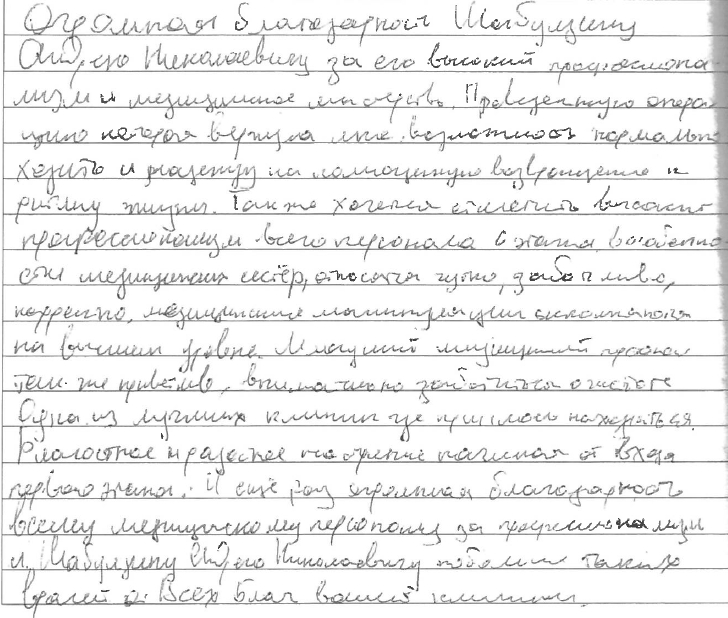 Огромная благодарность Шабулдину
Андрею Николаевичу за его высокий профессиона-
лизм и медицинское мастерство. Проведенную опера-
цию которая вернула мне возможность нормально
ходить и надежду на полноценную возвращение к
ритму жизни. Так же хочется отметить высокий
профессионализм всего персонала 6 этажа, в особенно-
сти медицинских сестёр, относятся чутко, заботливо,
корректно, медицинские манипуляции
на высшем уровне. Младший медицинский персонал
так же приветливо, внимательно заботиться о чистоте
Одна из лучших клиник где пришлось находиться.
и радостное настроение начиная от входа
первого этажа. И ещё раз огромная благодарность
всему медицинскому персоналу за профессионализм
и Шабулдину Андрею Николаевичу побольше таких
врачей. Всех благ вашей клинике.